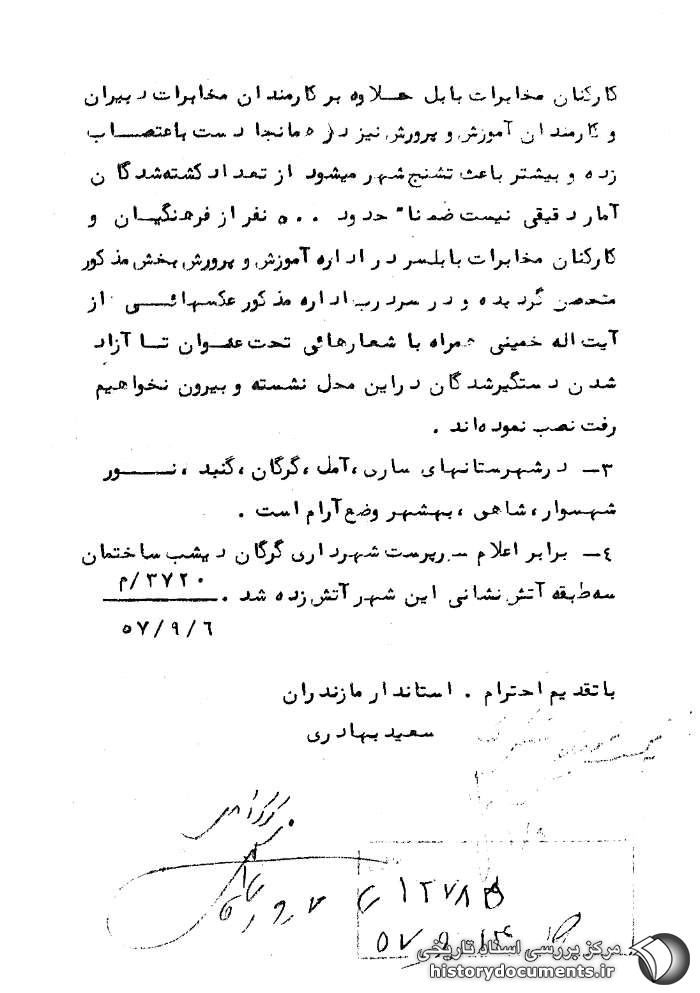 کارکنان مخابرات بابل علاوه بر کارمندان مخابرات دبیران
و کارمندان آموزش و پرورش نیز در همانجا دست باعتصاب
زده و بیشتر باعث تشنج شهر میشود از تعداد کشته‌شدگان
آمار دقیقی نیست ضمنا" حدود ۵۰۰ نفر از فرهنگیان و
کارکنان مخابرات بابلسر در اداره آموزش و پرورش بخش مذکور
متحصن گردیده و در سردرب اداره مذکور عکسهائی از
آیت اله خمینی همراه با شعارهائی تحت عنوان تا آزاد
شدن دستگیرشدگان دراین محل نشسته و بیرون نخواهیم
رفت نصب نموده‌اند .
۳ـ درشهرستانهای ساری ،آمل ،گرگان ،گنبد ، نور
شهسوار ،شاهی ،بهشهر وضع آرام است .
۴ـ برابر اعلام سرپرست شهرداری گرگان دیشب ساختمان
سه‌طبقه آتش نشانی این شهر آتش زده شد . ۳۷۲۰/م
۵۷/۹/۶
باتقدیم احترام . استاندار مازندران
سعید بهادری
۵۷
مرکز بررسی اسناد تاریخی
historydocuments.ir